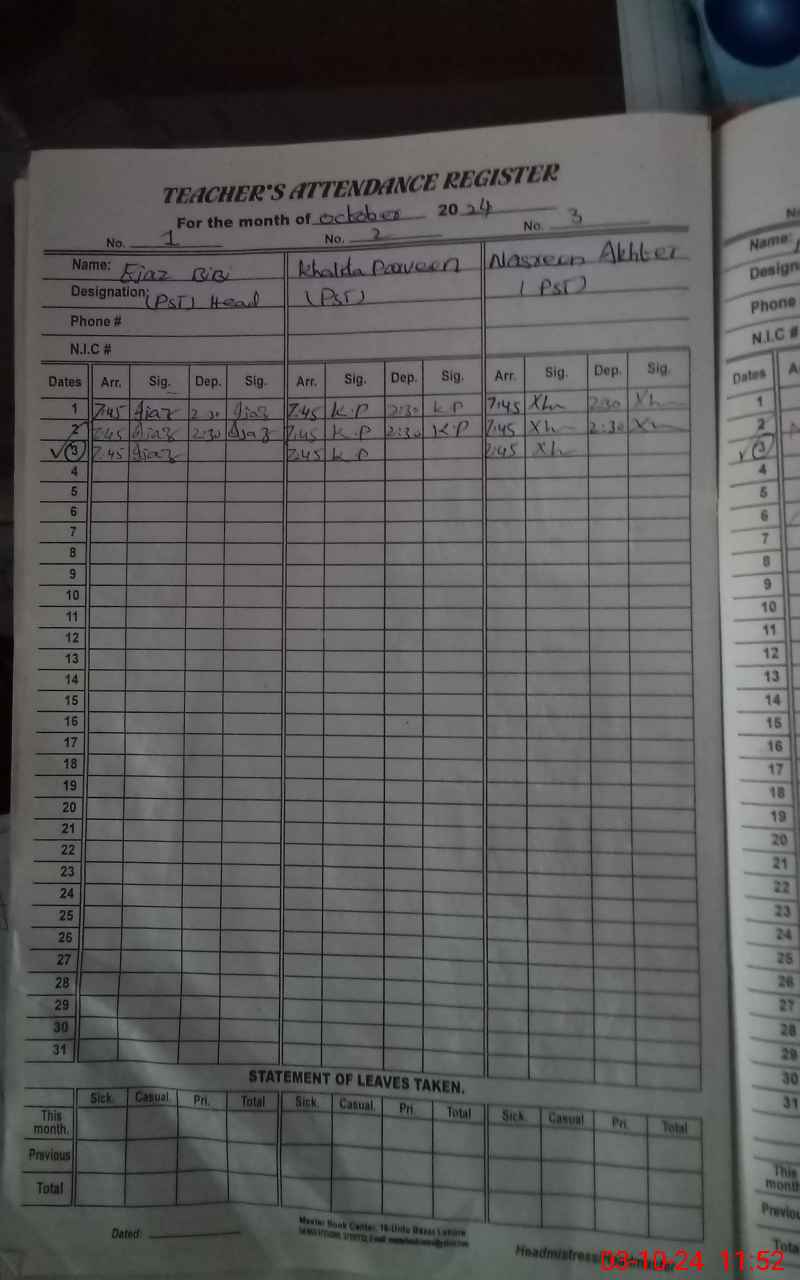 TEACHER'S ATTENDANCE REGISTER
For the month of october 2024
No. 1 No. 2 No. 3
Name: Ejaz BiBi Khalda Parveen Nasreen Akhter
Designation: (PST) Head (PST) (PST)
Phone #
N.I.C #
Dates Arr. Sig. Dep. Sig. Arr. Sig. Dep. Sig. Arr. Sig. Dep. Sig.
1 7:45 2:30 7:45 K.P 2:30 K P 7:45 2:30
2 7:45 2:30 7:45 K.P 2:30 K.P 7:45 2:30
3 7:45 7:45 K P 7:45
4
5
6
7
8
9
10
11
12
13
14
15
16
17
18
19
20
21
22
23
24
25
26
27
28
29
30
31
STATEMENT OF LEAVES TAKEN.
Sick. Casual. Pri. Total Sick. Casual. Pri. Total Sick. Casual Pri. Total
This month.
Previous
Total
Dated:
Master Book Center, 16-Urdu Bazar Lahore
Headmistress/
03-10-24 11:52
Name:
Design
Phone
N.I.C #
Dates A
1
2
3
4
5
6
7
8
9
10
11
12
13
14
15
16
17
18
19
20
21
22
23
24
25
26
27
28
29
30
31
This
month
Previou
Tota